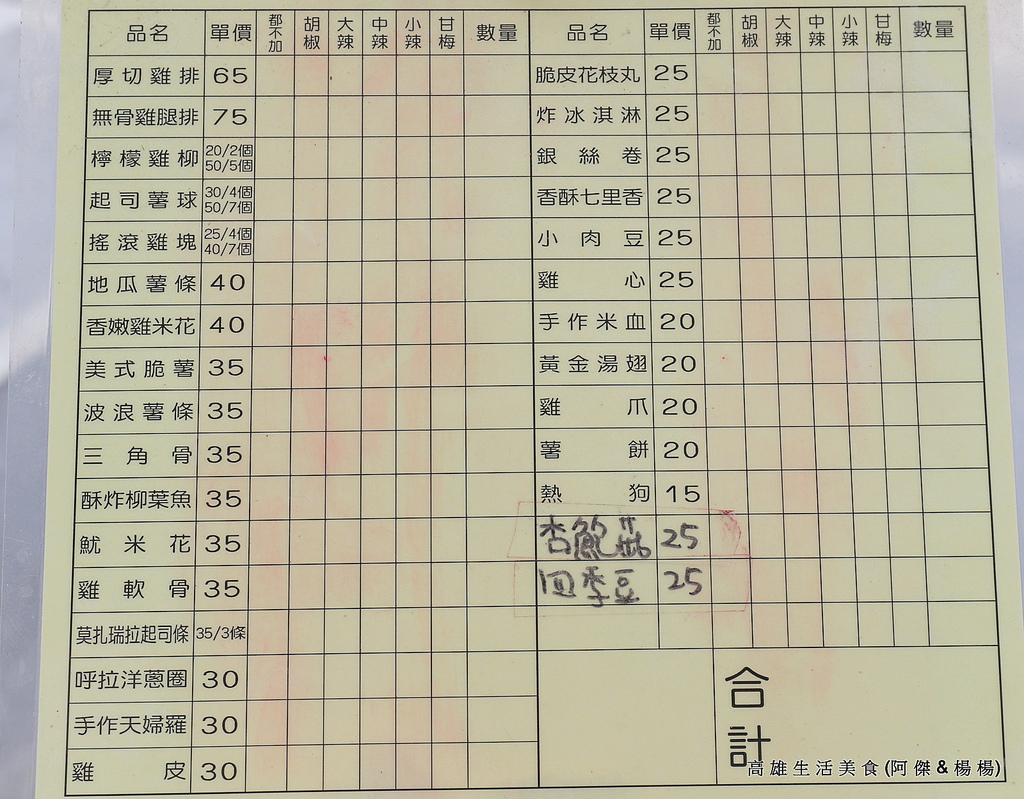 品名 單價 都不加 胡椒 大辣 中辣 小辣 甘梅 數量
厚切雞排 65
無骨雞腿排 75
檸檬雞柳 20/2個 50/5個
起司薯球 30/4個 50/7個
搖滾雞塊 25/4個 40/7個
地瓜薯條 40
香嫩雞米花 40
美式脆薯 35
波浪薯條 35
三角骨 35
酥炸柳葉魚 35
魷米花 35
雞軟骨 35
莫扎瑞拉起司條 35/3條
呼拉洋蔥圈 30
手作天婦羅 30
雞皮 30
品名 單價 都不加 胡椒 大辣 中辣 小辣 甘梅 數量
脆皮花枝丸 25
炸冰淇淋 25
銀絲卷 25
香酥七里香 25
小肉豆 25
雞心 25
手作米血 20
黃金湯翅 20
雞爪 20
薯餅 20
熱狗 15
杏鮑菇 25
四季豆 25
合計
高雄生活美食(阿傑&楊楊)